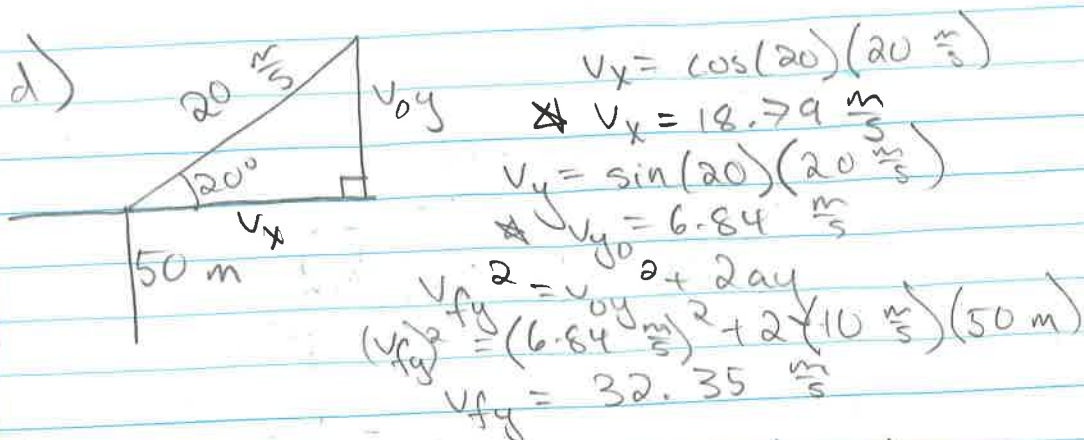 d)
20 m/s
V₀y
20°
Vₓ
50 m
Vₓ = cos(20)(20 m/s)
☆ Vₓ = 18.79 m/s
Vy = sin(20)(20 m/s)
☆ Vy₀ = 6.84 m/s
Vfy² = V₀y² + 2ay
(Vfy)² = (6.84 m/s)² + 2(10 m/s)(50 m)
Vfy = 32.35 m/s